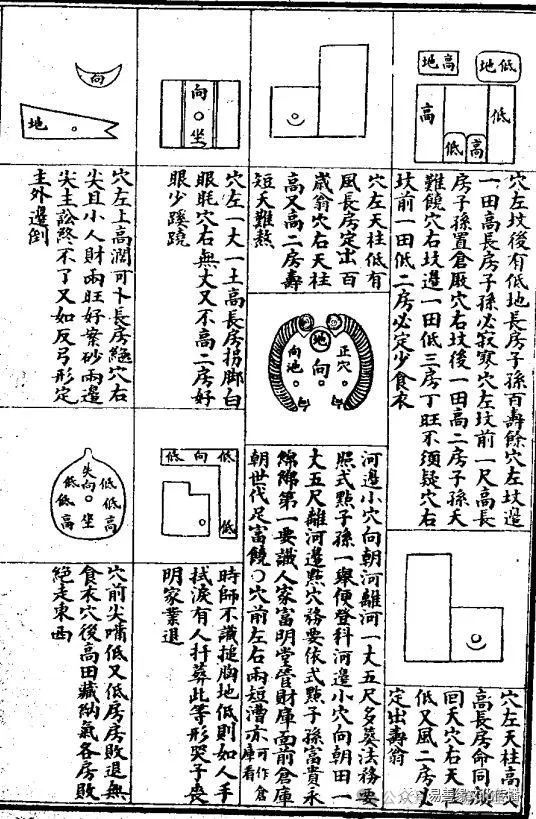 地高
地低
高
低
低
高
穴左坟後有低地長房子孫百壽餘穴左坟邊
一田高長房子孫必寂寞穴左坟前一尺高長
房子孫置倉厫穴右坟後一田高二房子孫天
難饒穴右坟邊一田低三房丁旺不須疑穴右
坟前一田低二房必定少食衣
穴左天柱高
高長房命同
回夭穴右天
低又風二房必
定出壽翁
穴左天柱低有
風長房定出百
歲翁穴右天柱
高又高二房壽
短夭難熬
正穴
地
向
向池
河邊小穴向朝河離河一大五尺多葬法務要
照式點子孫一舉便登科河邊小穴向朝田一
大五尺離河邊點穴務要依式點子孫富貴永
綿綿第一要識人家富明堂管財庫面前倉庫
朝世代足富饒〇穴前左右兩短漕亦可作倉庫看
向
坐
穴左一大一土高長房拐脚白
眼眊穴右無丈又不高二房好
眼少蹊蹺
低向低
低
時師不識搥胸地低則如人手
拭淚有人扦葬此等形哭子喪
明家業退
向
地
穴左上高濶可卜長房絕穴右
尖且小人財兩旺好案砂兩邊
尖主訟終不了又如反弓形定
主外邊倒
尖向
坐
低低高
低低高
穴前尖嘴低又低房房敗退無
食衣穴後高田藏納氣各房敗
絕走東西
公众号
易善缘